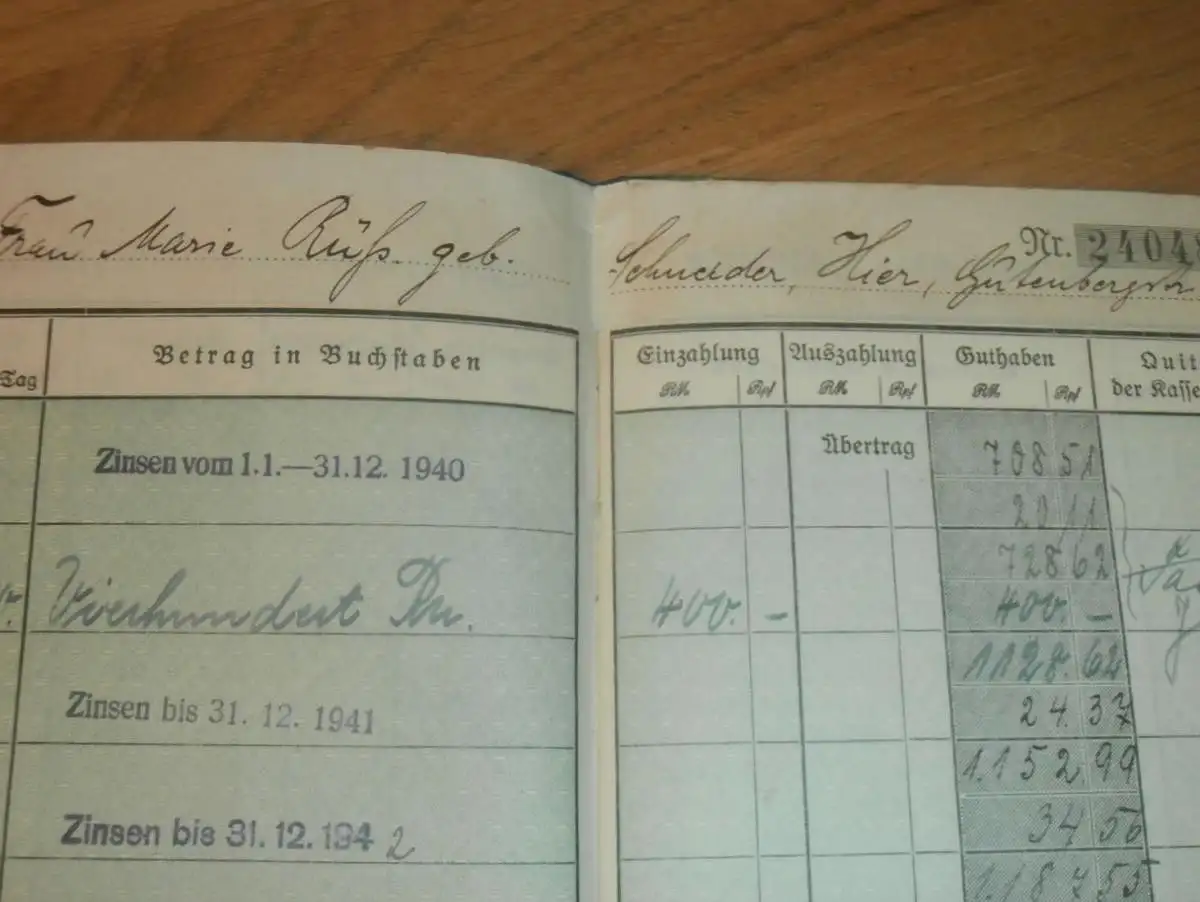 Frau Marie Rüß geb. Schneider, Hier, Gutenbergstr
Nr. 24048
Tag
Betrag in Buchstaben
Einzahlung
Auszahlung
Guthaben
Quit
der Kasse
RM Rpf RM Rpf RM Rpf
Übertrag 708 51
Zinsen vom 1.1.—31.12. 1940 20 11
728 62
Vierhundert RM. 400. — 400. —
1128. 62
Zinsen bis 31. 12. 1941 24. 37
1.152. 99
Zinsen bis 31. 12. 1942 34 56
1.187 55